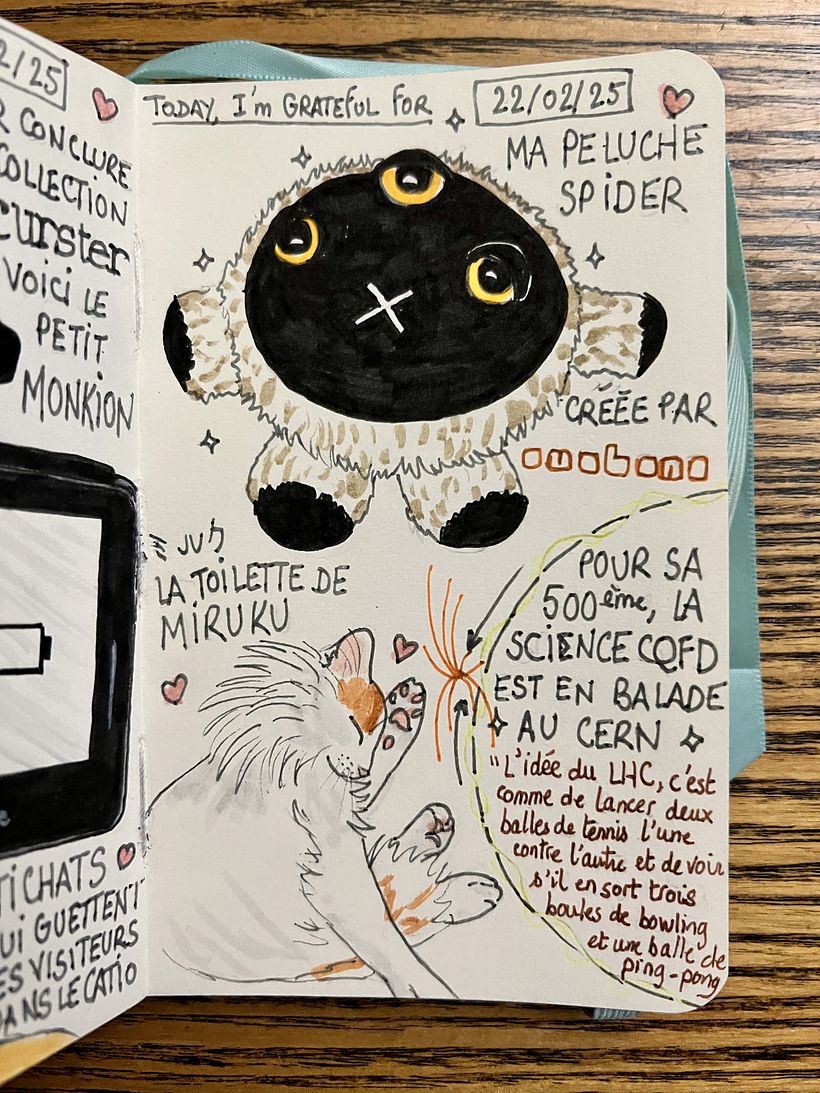 2/25
R CONCLURE
COLLECTION
curster
VOICI LE
PETIT
MONKION
TI CHATS
UI GUETTENT
ES VISITEURS
DANS LE CATIO
TODAY, I'm GRATEFUL FOR
22/02/25
MA PELUCHE
SPIDER
CRÉÉE PAR
omobono
ミルク
LA TOILETTE DE
MIRUKU
POUR SA
500ème, LA
SCIENCE CQFD
EST EN BALADE
AU CERN
"L'idée du LHC, c'est
comme de lancer deux
balles de tennis l'une
contre l'autre et de voir
s'il en sort trois
boules de bowling
et une balle de
ping-pong